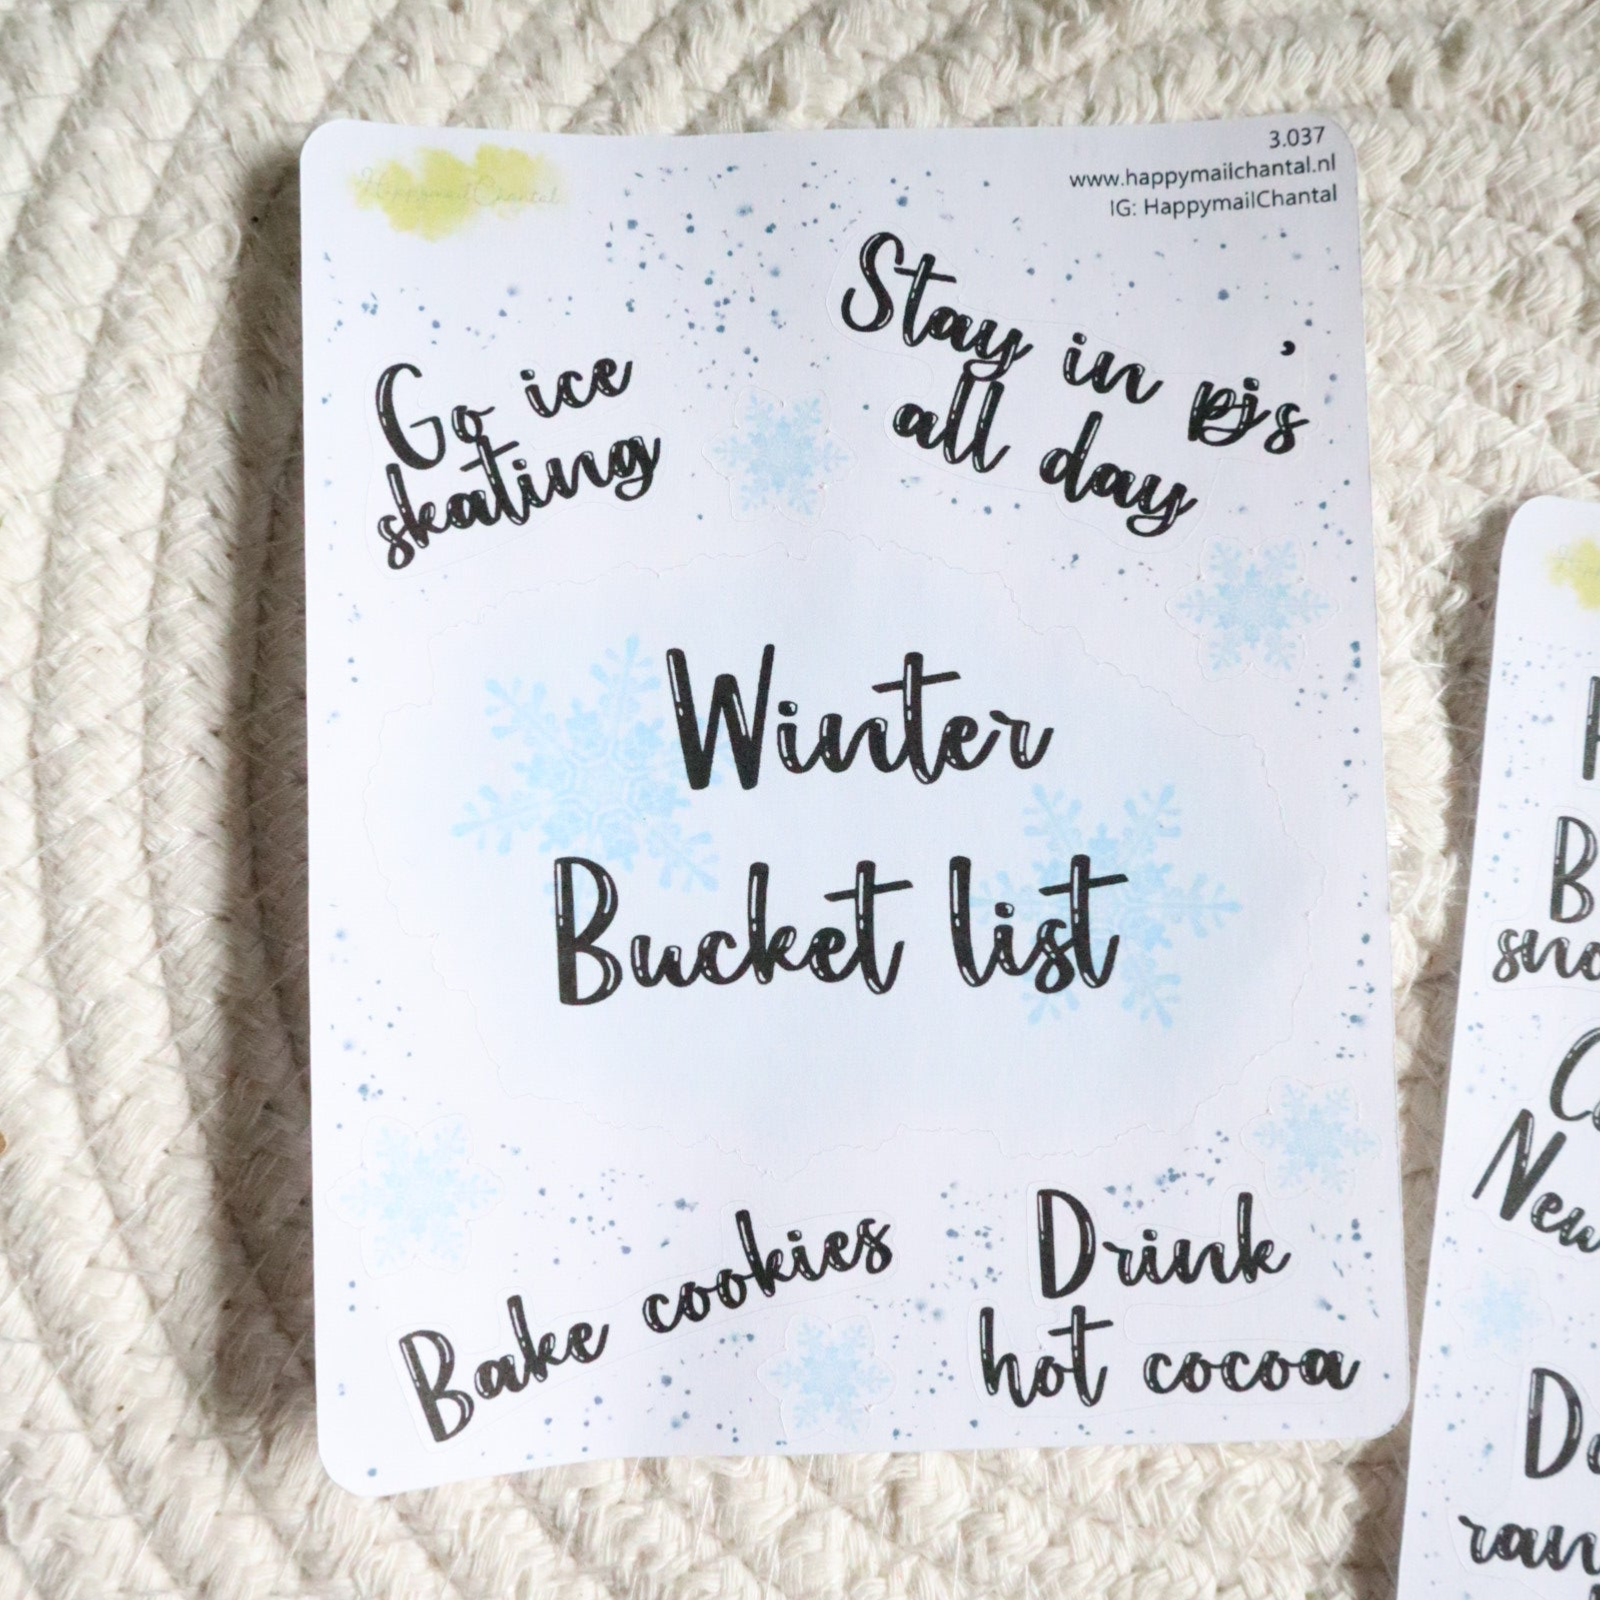 HappymailChantal
3.037
www.happymailchantal.nl
IG: HappymailChantal
Go ice
skating
Stay in pj's
all day
Winter
Bucket list
Bake cookies
Drink
hot cocoa